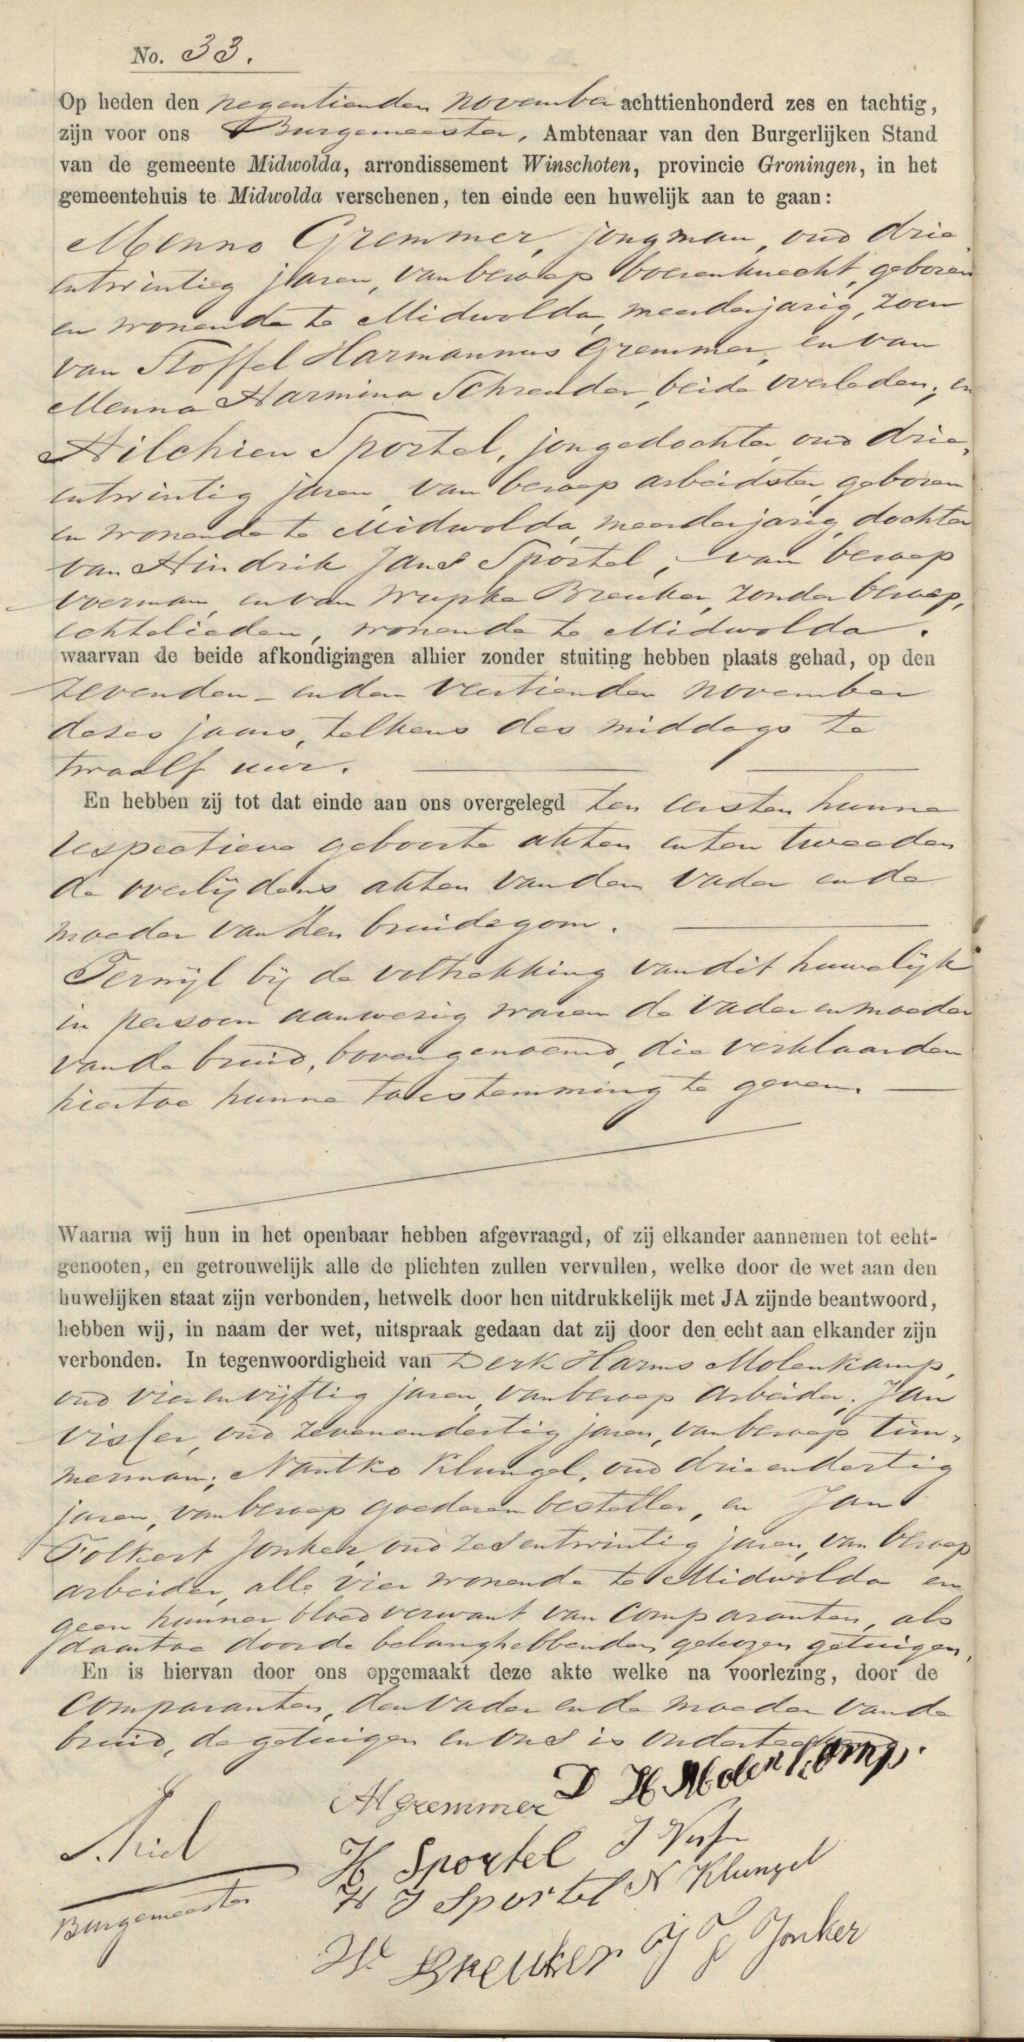 No. 33.
Op heden den negentienden november achttienhonderd zes en tachtig,
zijn voor ons Burgemeester, Ambtenaar van den Burgerlijken Stand
van de gemeente Midwolda, arrondissement Winschoten, provincie Groningen, in het
gemeentehuis te Midwolda verschenen, ten einde een huwelijk aan te gaan:
Menno Gremmer, jongman, oud drie
entwintig jaren, van beroep boerenknecht, geboren
en wonende te Midwolda, meerderjarig, zoon
van Stoffel Harmannus Gremmer, en van
Menna Harmina Schreuder, beide overleden; en
Hilchien Sportel, jongedochter, oud drie,
entwintig jaren, van beroep arbeidster, geboren
en wonende te Midwolda, meerderjarig, dochter
van Hindrik Jans Sportel, van beroep
voerman, en van Wupke Breuker, zonder beroep,
echtelieden, wonende te Midwolda.
waarvan de beide afkondigingen alhier zonder stuiting hebben plaats gehad, op den
zevenden en den veertienden november
dezes jaars, telkens des middags te
twaalf uur.
En hebben zij tot dat einde aan ons overgelegd ten eersten hunne
respectieve geboorte akten en ten tweeden
de overlijdens akten van den vader en de
moeder van den bruidegom.
Terwijl bij de voltrekking van dit huwelijk
in persoon aanwezig waren de vader en moeder
van de bruid, bovengenoemd, die verklaarden
hiertoe hunne toestemming te geven.
Waarna wij hun in het openbaar hebben afgevraagd, of zij elkander aannemen tot echt-
genooten, en getrouwelijk alle de plichten zullen vervullen, welke door de wet aan den
huwelijken staat zijn verbonden, hetwelk door hen uitdrukkelijk met JA zijnde beantwoord,
hebben wij, in naam der wet, uitspraak gedaan dat zij door den echt aan elkander zijn
verbonden. In tegenwoordigheid van Derk Harms Molenkamp,
oud vierenvijftig jaren, van beroep arbeider; Jan
Visser, oud zevenendertig jaren, van beroep tim-
merman; Nantko Klungel, oud drieendertig
jaren, van beroep goederenbesteller, en Jan
Folkert Jonker, oud zesentwintig jaren, van beroep
arbeider, alle vier wonende te Midwolda en
geen hunner bloedverwant van comparanten, als
daartoe door de belanghebbenden gekozen getuigen.
En is hiervan door ons opgemaakt deze akte welke na voorlezing, door de
comparanten, den vader en de moeder van de
bruid, de getuigen en ons is onderteekend.
M Gremmer D H Molenkamp.
H Sportel J Visser
H J Sportel N Klungel
Burgemeester
W. Breuker J F Jonker